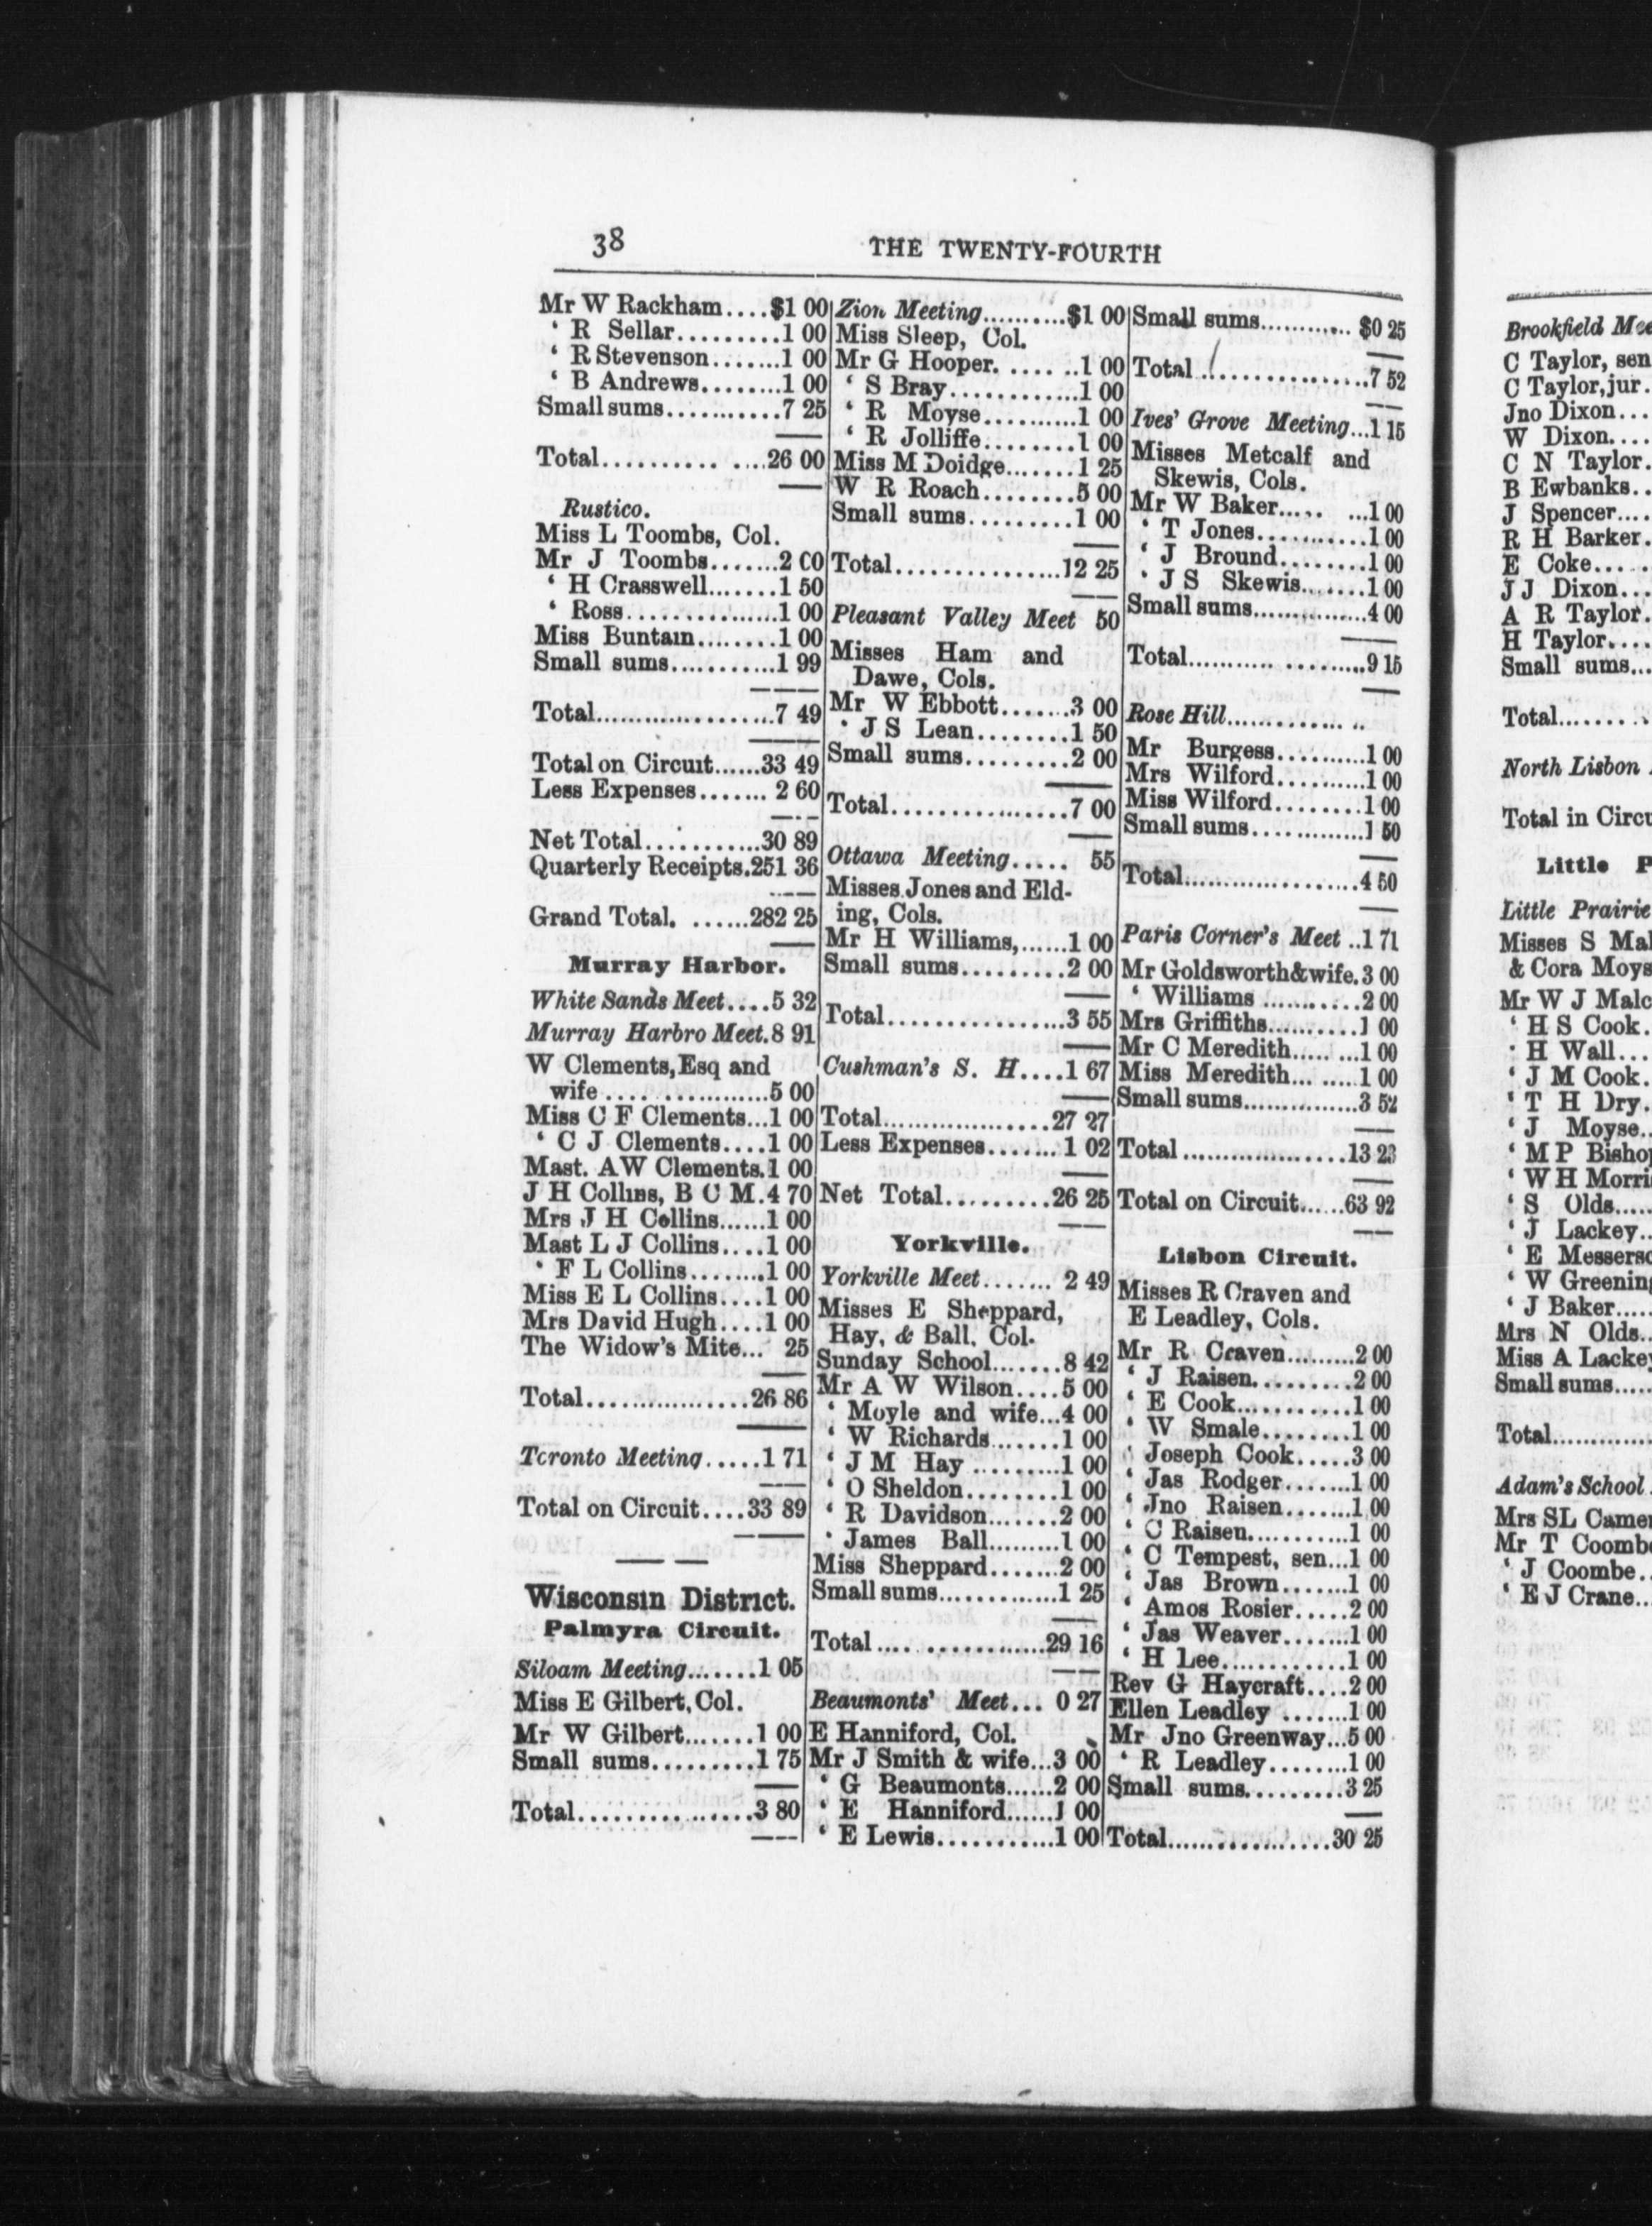 38
THE TWENTY-FOURTH
Mr W Rackham....$1 00
‘ R Sellar.........1 00
‘ R Stevenson.......1 00
‘ B Andrews........1 00
Small sums...........7 25
Total.......... ....26 00
Rustico.
Miss L Toombs, Col.
Mr J Toombs.......2 00
‘ H Crasswell.......1 50
‘ Ross...............1 00
Miss Buntain........1 00
Small sums...........1 99
Total....................7 49
Total on Circuit......33 49
Less Expenses....... 2 60
Net Total............30 89
Quarterly Receipts.251 36
Grand Total. ......282 25
Murray Harbor.
White Sands Meet....5 32
Murray Harbro Meet.8 91
W Clements, Esq and
wife .... ............5 00
Miss C F Clements...1 00
‘ C J Clements....1 00
Mast. AW Clements.1 00
J H Collins, B C M.4 70
Mrs J H Collins......1 00
Mast L J Collins....1 00
‘ F L Collins........1 00
Miss E L Collins....1 00
Mrs David Hugh....1 00
The Widow's Mite... 25
Total..................26 86
Toronto Meeting.....1 71
Total on Circuit....33 89
Wisconsin District.
Palmyra Circuit.
Siloam Meeting.......1 05
Miss E Gilbert, Col.
Mr W Gilbert.......1 00
Small sums..........1 75
Total...................3 80
Zion Meeting..........$1 00
Miss Sleep, Col.
Mr G Hooper. .... ..1 00
‘ S Bray.............1 00
‘ R Moyse..........1 00
‘ R Jolliffe.........1 00
Miss M Doidge.......1 25
W R Roach.........5 00
Small sums..........1 00
Total................12 25
Pleasant Valley Meet 50
Misses Ham and
Dawe, Cols.
Mr W Ebbott.......3 00
‘ J S Lean.........1 50
Small sums..........2 00
Total..................7 00
Ottawa Meeting..... 55
Misses Jones and Eld-
ing, Cols.
Mr H Williams,......1 00
Small sums..........2 00
Total.................3 55
Cushman's S. H....1 67
Total...................27 27
Less Expenses.......1 02
Net Total..........26 25
Yorkville.
Yorkville Meet....... 2 49
Misses E Sheppard,
Hay, & Ball, Col.
Sunday School.......8 42
Mr A W Wilson....5 00
‘ Moyle and wife...4 00
‘ W Richards.......1 00
‘ J M Hay .........1 00
‘ O Sheldon.........1 00
‘ R Davidson.......2 00
‘ James Ball.........1 00
Miss Sheppard.......2 00
Small sums.............1 25
Total .... .............29 16
Beaumonts' Meet... 0 27
E Hanniford, Col.
Mr J Smith & wife...3 00
‘ G Beaumonts......2 00
‘ E Hanniford......1 00
‘ E Lewis............1 00
Small sums............ $0 25
Total..................7 52
Ives' Grove Meeting...1 15
Misses Metcalf and
Skewis, Cols.
Mr W Baker..... ...1 00
‘ T Jones............1 00
‘ J Bround.........1 00
‘ J S Skewis.......1 00
Small sums..............4 00
Total........... .........9 15
Rose Hill............. ..
Mr Burgess..........1 00
Mrs Wilford..........1 00
Miss Wilford.........1 00
Small sums.............1 50
Total...................4 50
Paris Corner's Meet ..1 71
Mr Goldsworth&wife.3 00
‘ Williams ...........2 00
Mrs Griffiths..........1 00
Mr C Meredith..... ...1 00
Miss Meredith... .....1 00
Small sums...............3 52
Total ..................13 23
Total on Circuit......63 92
Lisbon Circuit.
Misses R Craven and
E Leadley, Cols.
Mr R Craven.........2 00
‘ J Raisen..........2 00
‘ E Cook...........1 00
‘ W Smale.........1 00
‘ Joseph Cook.....3 00
‘ Jas Rodger.......1 00
‘ Jno Raisen.......1 00
‘ C Raisen...........1 00
‘ C Tempest, sen...1 00
‘ Jas Brown.......1 00
‘ Amos Rosier.....2 00
‘ Jas Weaver.......1 00
‘ H Lee.............1 00
Rev G Haycraft....2 00
Ellen Leadley .......1 00
Mr Jno Greenway...5 00
‘ R Leadley........1 00
Small sums..........3 25
Total..................30 25
Brookfield
C Taylor, sen
C Taylor, jur.
Jno Dixon...
W Dixon....
C N Taylor.
B Ewbanks..
J Spencer....
R H Barker.
E Coke....
J J Dixon...
A R Taylor.
H Taylor....
Small sums...
Total........
North Lisbon
Total in
Little
Little Prairie
Misses S
& Cora
Mr W J
‘ H S Cook.
‘ H Wall...
‘ J M Cook.
‘ T H Dry.
‘ J Moyse..
‘ M P
‘ W H
‘ S Olds.....
‘ J Lackey..
‘ E
‘ W
‘ J Baker.....
Mrs N Olds..
Miss A
Small sums.....
Total.............
Adam's School
Mrs SL
Mr T
‘ J Coombe..
‘ E J Crane...